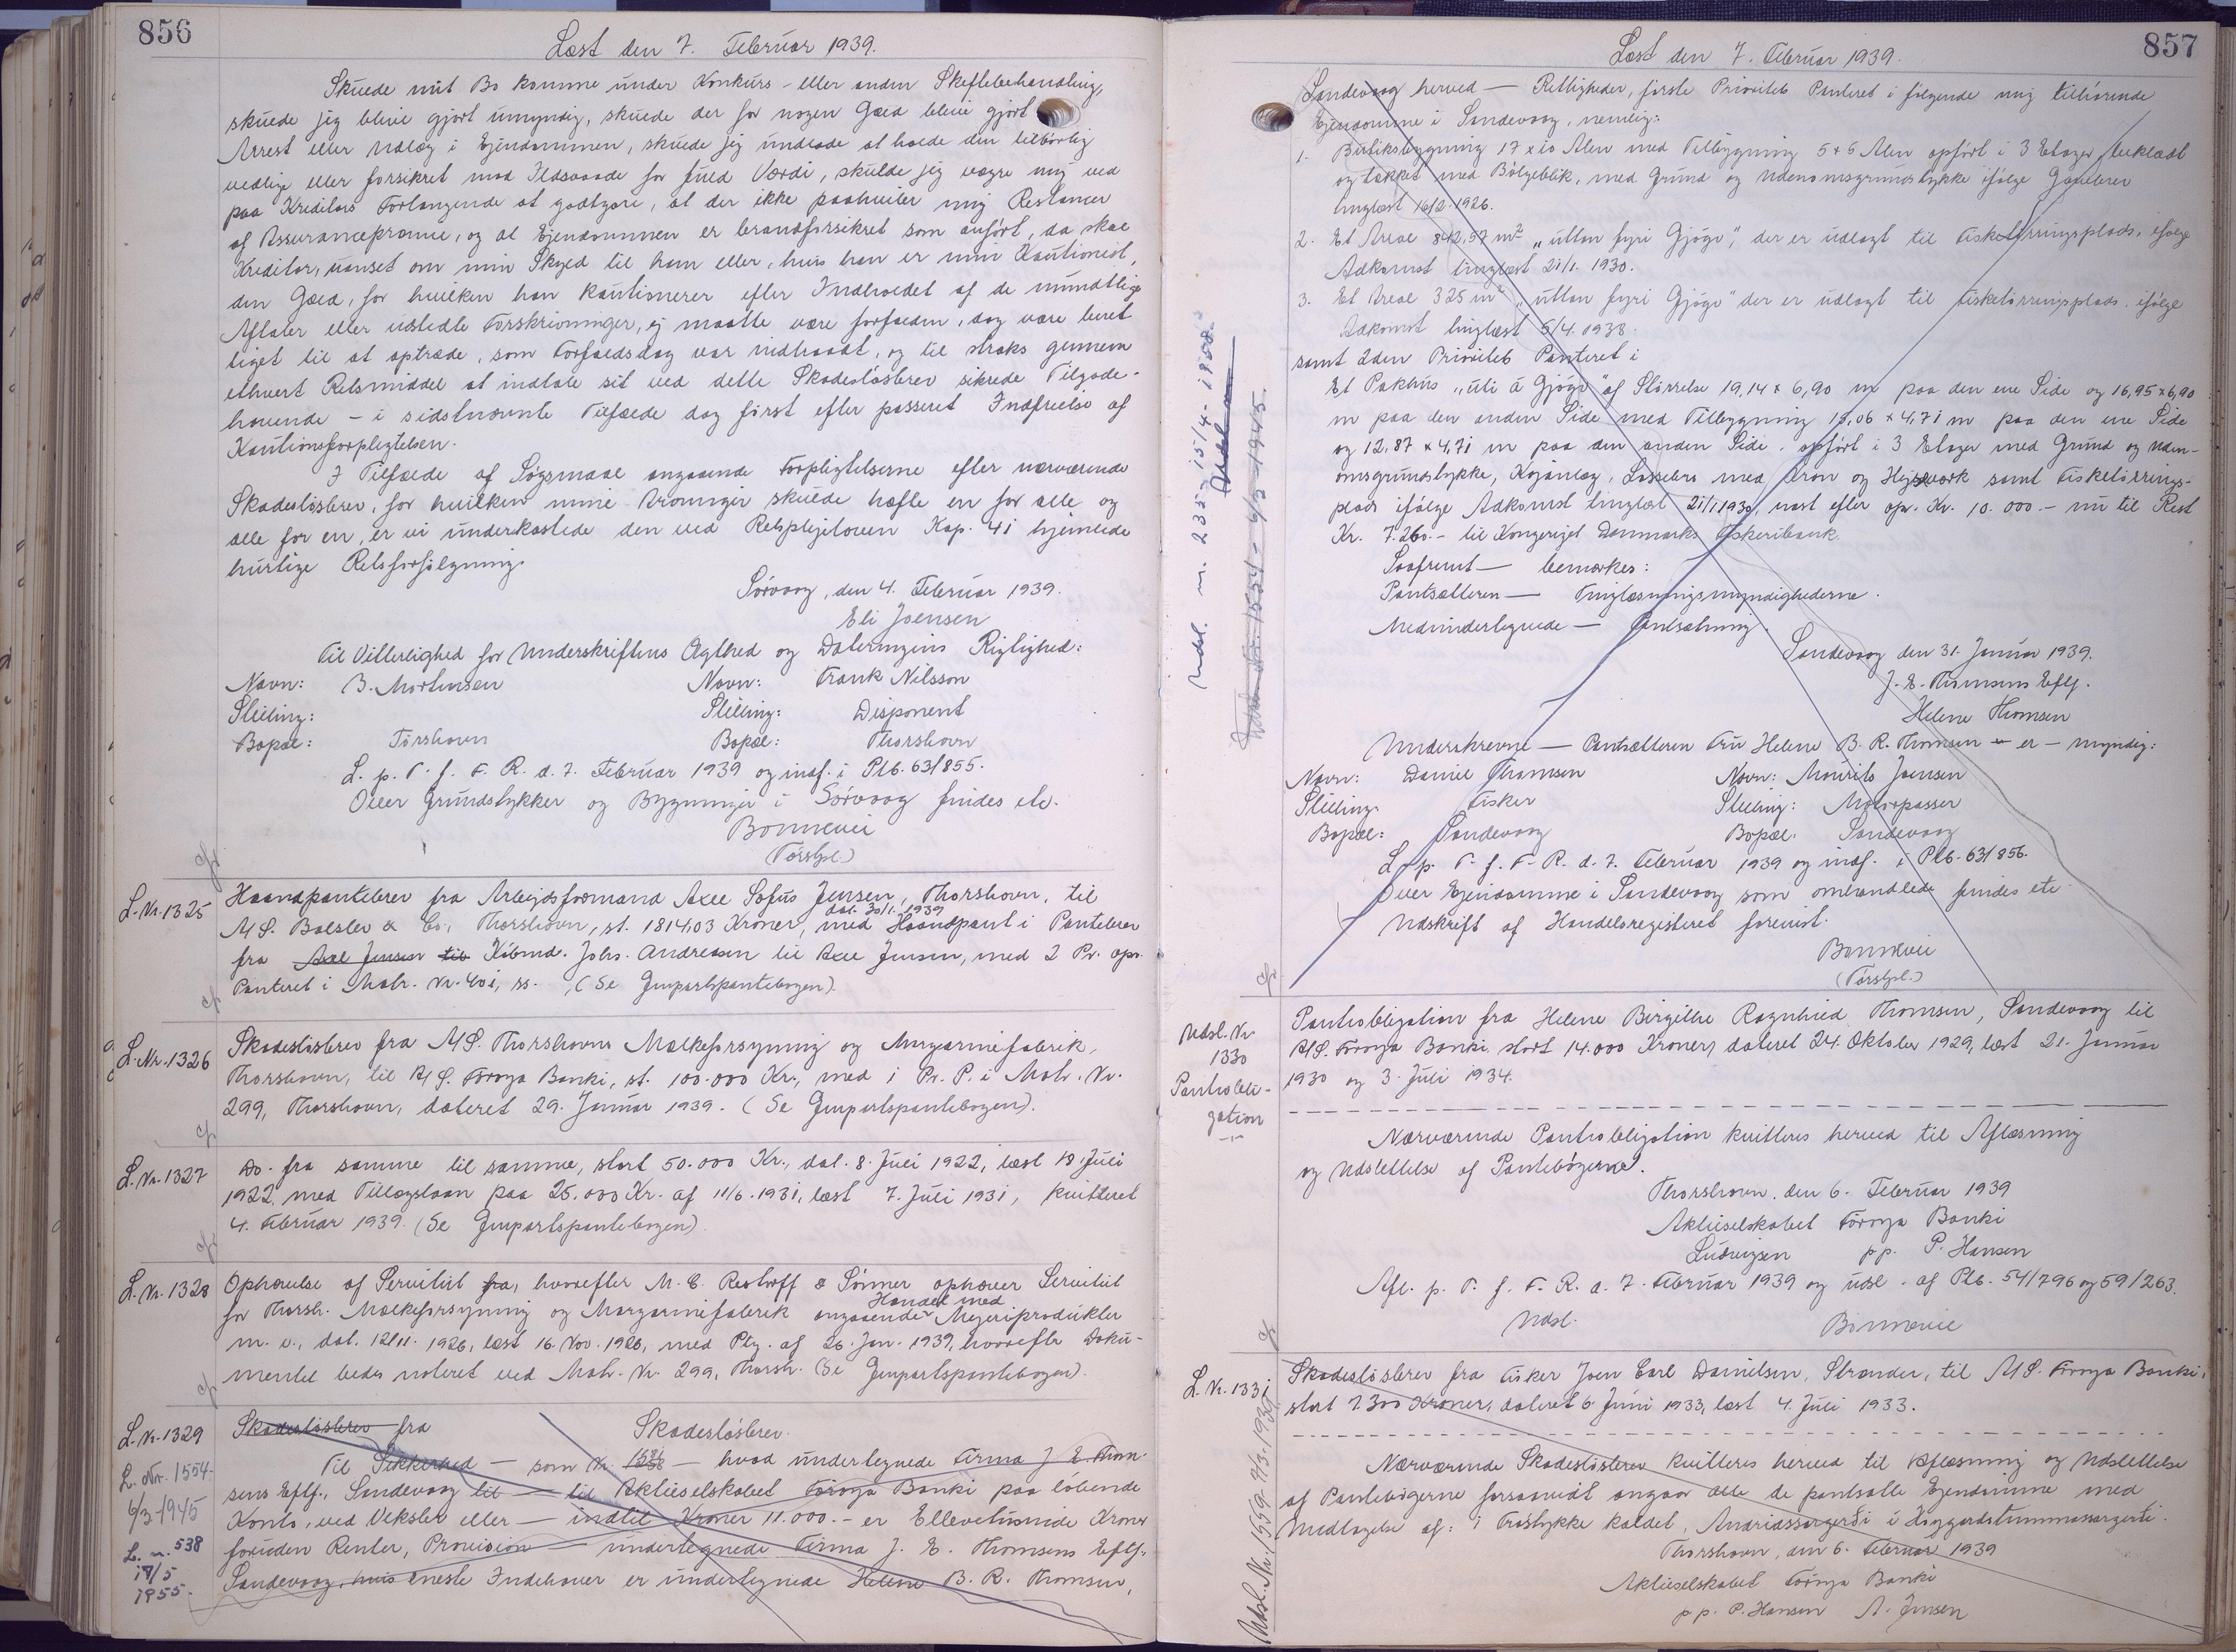 856
Læst den 7. Februar 1939.
Skulde mit Bo komme under Konkurs- eller anden Skiftebehandling,
skulde jeg blive gjort umyndig, skulde der for nogen Gæld blive gjort
Arrest eller Udlæg i Ejendommen, skulde jeg undlade at holde den tilbørlig
vedlige eller forsikret mod Ildsvaade for fuld Værdi, skulde jeg vægre mig ved
paa Kreditors Forlangende at godtgøre, at der ikke paahviler mig Restancer
af Assurancepræmie, og at Ejendommen er brandforsikret som anført, da skal
Kreditor, uanset om min Skyld til ham eller, hvis han er min Kautionist,
den Gæld, for hvilken han kautionerer efter Indholdet af de mundtlige
Aftaler eller udstedte Forskrivninger, ej maatte være forfalden, dog være beret-
tiget til at optræde, som Forfaldsdag var indtraadt, og til straks gennem
ethvert Retsmiddel at indtale sit ved dette Skadesløsbrev sikrede Tilgode-
havende – i sidstnævnte Tilfælde dog først efter passeret Indfrielse af
Kautionsforpligtelsen.
I Tilfælde af Søgsmaal angaaende Forpligtelserne efter nærværende
Skadesløsbrev, for hvilken mine Arvinger skulde hæfte en for alle og
alle for en, er vi underkastede den ved Retsplejeloven Kap. 41 hjemlede
hurtige Retsforfølgning.
Sørvaag, den 4. Februar 1939.
Eli Joensen
Til Vitterlighed for Underskriftens Ægthed og Dateringens Rigtighed:
Navn: B. Mortensen Navn: Frank Nilsson
Stilling: Stilling: Disponent
Bopæl: Torshavn Bopæl: Thorshavn
L. p. T. f. F. R. d. 7. Februar 1939 og indf. i Ptb. 63/855.
Over Grundstykker og Bygninger i Sørvaag findes etc.
Bonnevie
(Torshl.)
L. Nr. 1325
Haandpantebrev fra Arbejdsformand Axel Sofus Jensen, Thorshavn, til
dat. 30/1. 1939
A/S. Balslev & Co., Thorshavn, st. 1814,03 Kroner, med Haandpant i Pantebrev
fra Axel Jensen til Købmd. Johs. Andreasen til Axel Jensen, med 2 Pr. opr.
Panteret i Matr. Nr. 40i, ss. , (Se Genpartspantebogen).
L. Nr. 1326
Skadesløsbrev fra A/S. Thorshavns Mælkeforsyning og Margarinefabrik,
Thorshavn, til A/S. Føroya Banki, st. 100.000 Kr., med 1 Pr. P. i Matr. Nr.
299, Thorshavn, dateret 29. Januar 1939. (Se Genpartspantebogen).
L. Nr. 1327
Do. fra samme til samme, stort 50.000 Kr., dat. 8. Juli 1922, læst 18. Juli
1922, med Tillægslaan paa 25.000 Kr. af 11/6. 1931, læst 7. Juli 1931, kvitteret
4. Februar 1939. (Se Genpartspantebogen).
L. Nr. 1328
Ophævelse af Servitut fra, hvorefter M. C. Restorff & Sønner ophæver Servitut
for Thorsh. Mælkeforsyning og Margarinefabrik angaaende Handel med Mejeriprodukter
m. v., dat. 12/11. 1926, læst 16. Nov. 1926, med Ptg. af 26. Jan. 1939, hvorefter Doku-
mentet bedes noteret ved Matr. Nr. 299, Thorsh. (Se Genpartspantebogen).
L. Nr. 1329
L. Nr. 1554
6/3-1945
L. n. 538
17/5
1955.
Skadesløsbrev fra Skadesløsbrev.
Til Sikkerhed — som Nr. — hvad undertegnede Firma J. E. Thom-
sens Eftf., Sandevaag til — til Aktieselskabet Føroya Banki paa løbende
Konto, ved Veksler eller — indtil Kroner 11.000.- er Ellevetusinde Kroner
foruden Renter, Provision — undertegnede Firma J. E. Thomsens Eftf.,
Sandevaag, hvis eneste Indehaver er undertegnede Helene B. R. Thomsen,
857
Læst den 7. Februar 1939.
Udsl. n. 235- 15/4-1958
Udsl. Nr. 1554 - 6/3-1945.
Sandevaag herved — Rettigheder, første Prioritets Panteret i følgende mig tilhørende
Ejendomme i Sandevaag, nemlig:
1. Butiksbygning 17 x 10 Alen med Tilbygning 5 x 6 Alen opført i 3 Etager, beklædt
og tækket med Bølgeblik, med Grund og Udenomsgrundstykke ifølge Gavebrev
tinglæst 16/2. 1926.
2. Et Areal 842,57 m² „uttan fyri Gjógv", der er udlagt til Fisketørringsplads, ifølge
Adkomst tinglæst 21/1. 1930.
3. Et Areal 325 m² „uttan fyri Gjógv" der er udlagt til Fisketørringsplads, ifølge
Adkomst tinglæst 5/4. 1938.
samt 2den Prioritets Panteret i
Et Pakhus „úti á Gjógv" af Størrelse 19,14 x 6,90 m paa den ene Side og 16,95 x 6,90
m paa den anden Side med Tilbygning 15,06 x 4,71 m paa den ene Side
og 12,87 x 4,71 m paa den anden Side, opført i 3 Etager med Grund og Uden-
omsgrundstykke, Kajanlæg, Lossebro med Kran og Hejseværk samt Fisketørrings-
plads ifølge Adkomst tinglæst 21/1 1930, næst efter opr. Kr. 10.000.- nu til Rest
Kr. 7.260.- til Kongeriget Danmarks Fiskeribank.
Saafremt — bemærkes:
Pantsætteren — Tinglæsningsmyndighederne.
Medundertegnede — Pantsætning.
Sandevaag den 31. Januar 1939.
J. E. Thomsens Eftf.
Helene Thomsen
Underskrevne — Pantsætteren Fru Helene B. R. Thomsen er — myndig:
Navn: Daniel Thomsen Navn: Mourits Joensen
Stilling: Fisker Stilling: Motorpasser
Bopæl: Sandevaag Bopæl: Sandevaag
L. p. T. f. F. R. d. 7. Februar 1939 og indf. i Ptb. 63/856.
Over Ejendomme i Sandevaag som omhandlede findes etc.
Udskrift af Handelsregisteret forevist.
Bonnevie
(Torshl.)
Udsl. Nr.
1330
Pantobli-
gation
Pantobligation fra Helene Birgithe Ragnhild Thomsen, Sandevaag til
A/S. Føroya Banki, stort 14.000 Kroner, dateret 24. Oktober 1929, læst 21. Januar
1930 og 3. Juli 1934.
Nærværende Pantobligation kvitteres herved til Aflæsning
og Udslettelse af Pantebøgerne.
Thorshavn, den 6. Februar 1939
Aktieselskabet Føroya Banki
Ludvigsen pp. P. Hansen
Afl. p. T. f. F. R. d. 7. Februar 1939 og udsl. af Ptb. 54/796 og 59/263.
Udsl. Bonnevie
L. Nr. 1331
Udsl. Nr. 1559-7/3.1939
Skadesløsbrev fra Fisker Joen Carl Danielsen, Strænder, til A/S. Føroya Banki,
stort 2300 Kroner, dateret 6. Juni 1933, læst 4. Juli 1933.
Nærværende Skadesløsbrev kvitteres herved til Aflæsning og Udslettelse
af Pantebøgerne forsaavidt angaar alle de pantsatte Ejendomme med
Undtagelse af: 1 Træstykke kaldet,
Thorshavn, den 6. Februar 1939
Aktieselskabet Føroya Banki
pp. P. Hansen A. Jensen